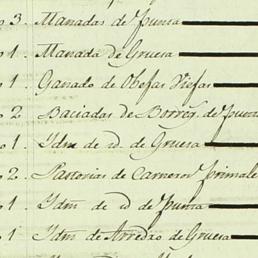 o 3. Manadas de Punta
o 1. Manada de Gruesa
o 1 Ganado de Obejas Viejas
o 2 Baciadas de Borreg.s de Punta
o 1 Ydm de id. de Gruesa
o 2. Pastorias de Carneros Primale
o 1 Ydm de id de Punta
o 1 Ydm de Arredro de Gruesa